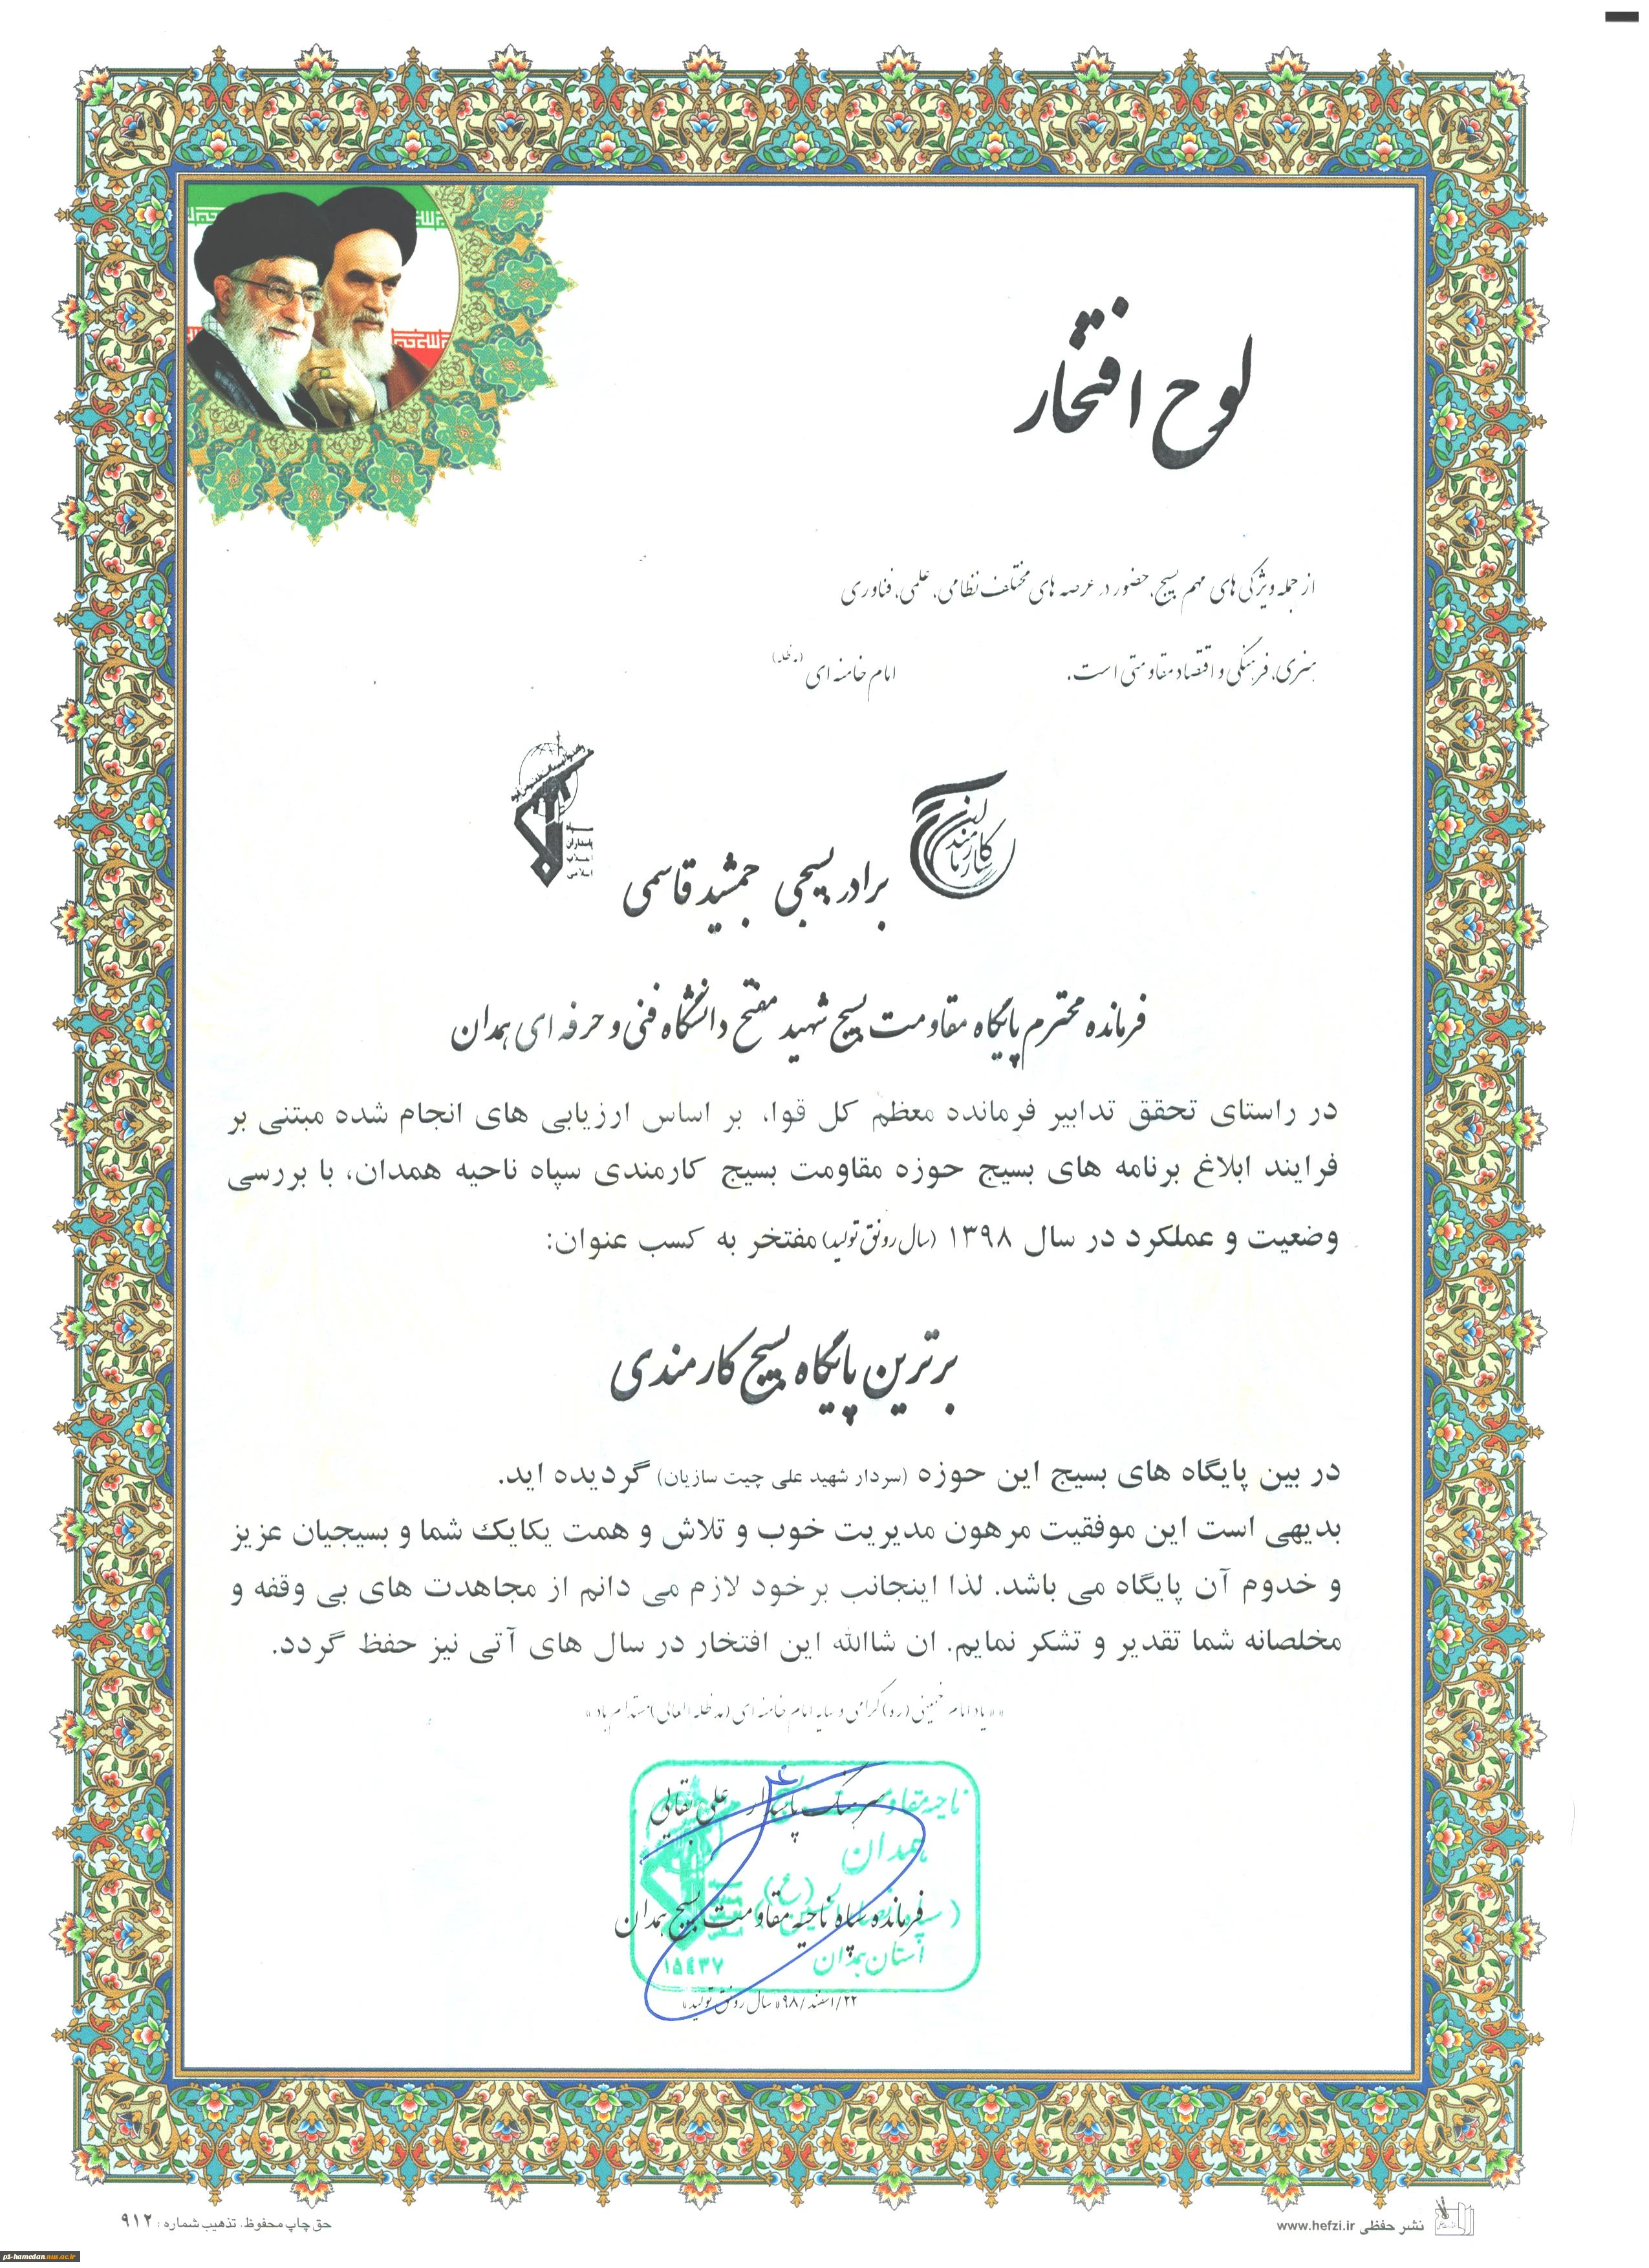 لوح افتخار
از جمله ویژگی های مهم بسیج، حضور در عرصه های مختلف نظامی، علمی، فناوری
هنری، فرهنگی و اقتصاد مقاومتی است. امام خامنه ای (مدظله)
کارمندان
سپاه
پاسداران
انقلاب
اسلامی
برادر بسیجی جمشید قاسمی
فرمانده محترم پایگاه مقاومت بسیج شهید مفتح دانشگاه فنی و حرفه ای همدان
در راستای تحقق تدابیر فرمانده معظم کل قوا، بر اساس ارزیابی های انجام شده مبتنی بر
فرایند ابلاغ برنامه های بسیج حوزه مقاومت بسیج کارمندی سپاه ناحیه همدان، با بررسی
وضعیت و عملکرد در سال ۱۳۹۸ (سال رونق تولید) مفتخر به کسب عنوان:
برترین پایگاه بسیج کارمندی
در بین پایگاه های بسیج این حوزه (سردار شهید علی چیت سازیان) گردیده اید.
بدیهی است این موفقیت مرهون مدیریت خوب و تلاش و همت یکایک شما و بسیجیان عزیز
و خدوم آن پایگاه می باشد. لذا اینجانب برخود لازم می دانم از مجاهدت های بی وقفه و
مخلصانه شما تقدیر و تشکر نمایم. ان شاالله این افتخار در سال های آتی نیز حفظ گردد.
«یاد امام خمینی (ره) گرامی و سایه امام خامنه ای (مدظله العالی) مستدام باد»
سرهنگ پاسدار علی نقالی
ناحیه مقاومت
همدان
فرمانده سپاه ناحیه مقاومت بسیج همدان
استان همدان
۱۵۴۳۷
۲۲/اسفند/۹۸ «سال رونق تولید»
حق چاپ محفوظ. تذهیب شماره: ۹۱۲
نشر حفظی www.hefzi.ir
p1-hamedan.nus.ac.ir